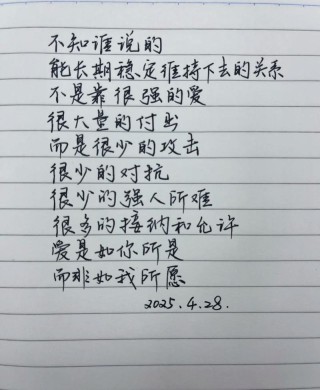 不知谁说的
能长期稳定维持下去的关系
不是靠很强的爱
很大量的付出
而是很少的攻击
很少的对抗
很少的强人所难
很多的接纳和允许
爱是如你所是
而非如我所愿
2025.4.28.